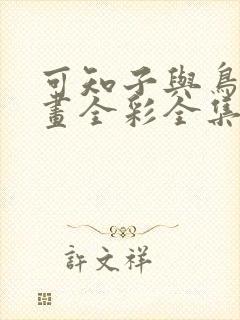 可知子與鳥
畫全彩全集
許文祥